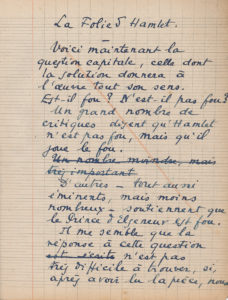 La Folie d'Hamlet.
Voici maintenant la
question capitale, celle dont
la solution donnera à
l'œuvre tout son sens.
Est-il fou ? N'est-il pas fou ?
Un grand nombre de
critiques disent qu'Hamlet
n'est pas fou, mais qu'il
joue le fou.
Un nombre moindre, mais
très important
D'autres - tout aussi
éminents, mais moins
nombreux - soutiennent que
le Prince d'Elseneur est fou.
Il me semble que la
réponse à cette question
n'est pas
très difficile à trouver, si,
après avoir lu la pièce, nous